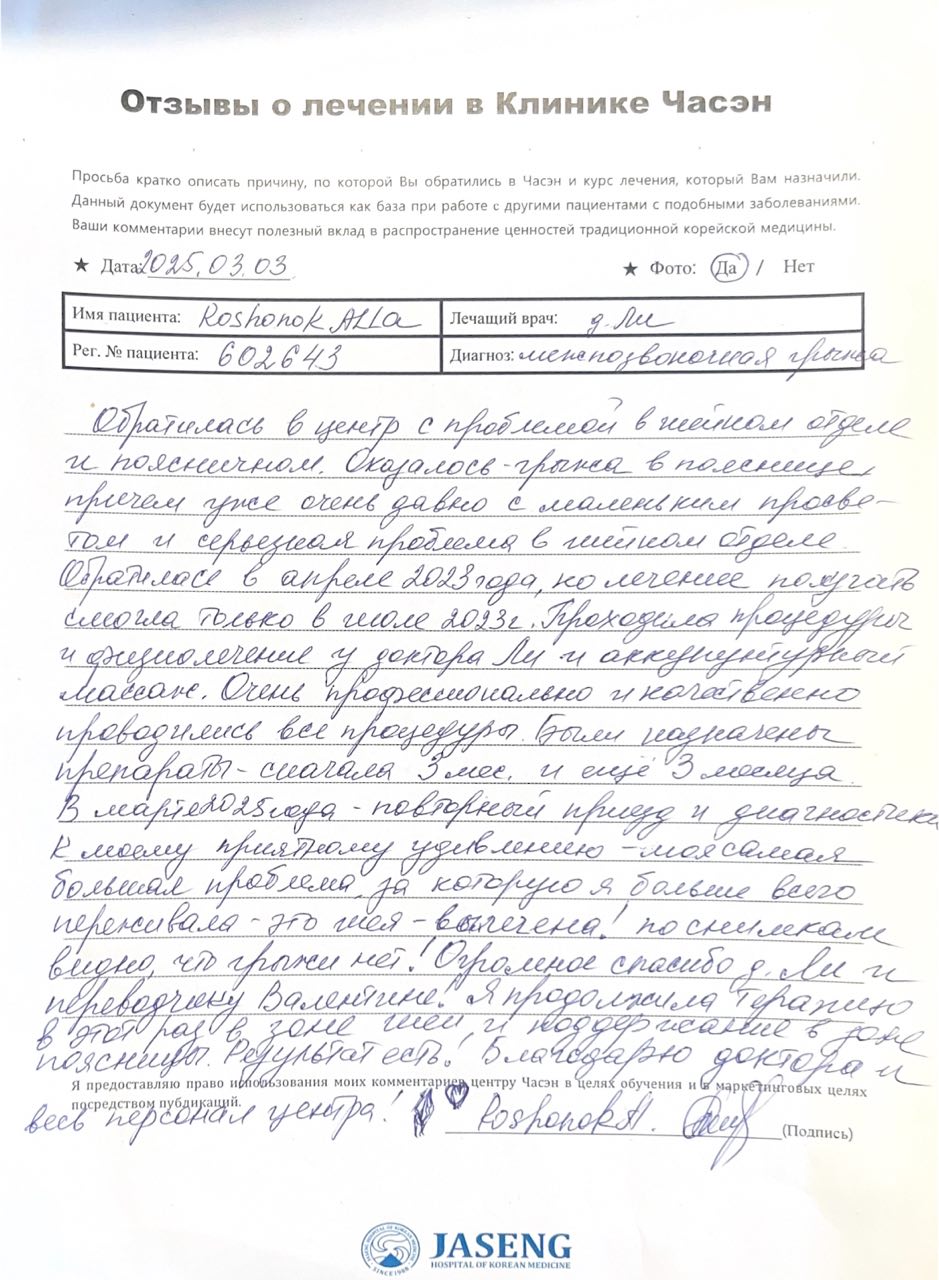 Отзывы о лечении в Клинике Часэн
Просьба кратко описать причину, по которой Вы обратились в Часэн и курс лечения, который Вам назначили.
Данный документ будет использоваться как база при работе с другими пациентами с подобными заболеваниями.
Ваши комментарии внесут полезный вклад в распространение ценностей традиционной корейской медицины.
★ Дата: 2025.03.03 ★ Фото: Да / Нет
Имя пациента: Roshonok Alla Лечащий врач: д. Ли
Рег. № пациента: 602643 Диагноз: межпозвоночная грыжа
Обратилась в центр с проблемой в шейном отделе
и поясничном. Оказалось - грыжа в пояснице,
причем уже очень давно с маленьким просве-
том и серьезная проблема в шейном отделе.
Обратилась в апреле 2023 года, но лечение получать
смогла только в июле 2023г. Проходила процедуры
и физиолечение у доктора Ли и аккупунктурный
массаж. Очень профессионально и качественно
проводились все процедуры. Были назначены
препараты - сначала 3 мес. и ещё 3 месяца.
В марте 2025 года - повторный приезд и диагностика
К моему приятному удивлению - моя самая
большая проблема, за которую я больше всего
переживала - это шея - вылечена! по снимкам
видно, что грыжи нет! Огромное спасибо д. Ли и
переводчику Валентине! Я продолжила терапию
в этот раз в зоне шеи и поддержание в зоне
поясницы. Результат есть! Благодарю доктора и
Я предоставляю право использования моих комментариев центру Часэн в целях обучения и в маркетинговых целях
посредством публикаций.
весь персонал центра! Roshonok A. (Подпись)
JASENG
HOSPITAL OF KOREAN MEDICINE